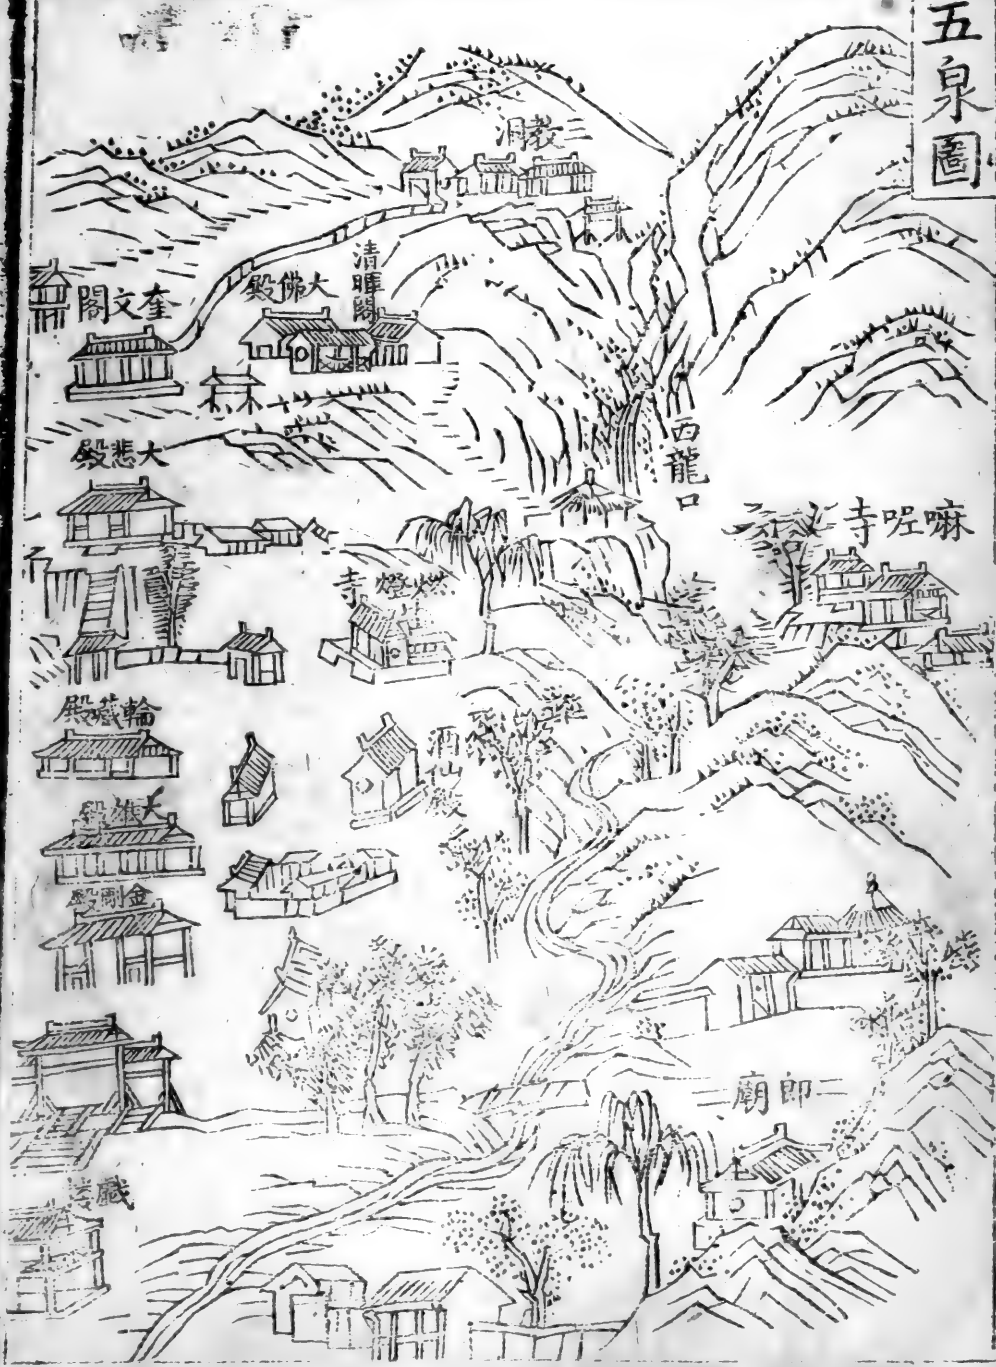 五泉圖
三教洞
清暉閣
大佛殿
奎文閣
西龍口
大悲殿
嘛呢寺
燃燈寺
輪藏殿
酒仙殿
大雄殿
金剛殿
二郎廟
戲樓